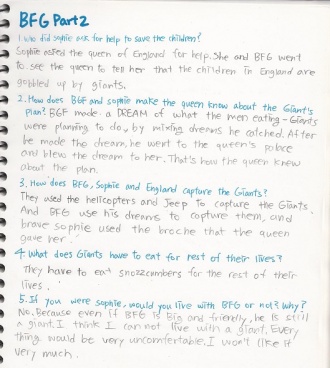 BFG Part 2
1. Who did sophie ask for help to save the children?
Sophie asked the queen of England for help. She and BFG went
to see the queen to tell her that the children in England are
gobbled up by giants.
2. How does BGF and sophie make the queen know about the Giant's
plan? BGF made a DREAM of what the men eating-Giants
were planning to do, by mixing dreams he catched. After
he made the dream, he went to the queen's police
and blew the dream to her. That's how the queen knew
about the plan.
3. How does BFG, Sophie and England capture the Giants?
They used the helicopters and Jeep to capture the Giants.
And BFG use his dreams to capture them, and
brave sophie used the broche that the queen
gave her.
4 What does Giants have to eat for rest of their lives?
They have to eat snozzcumbers for the rest of their
lives.
5. If you were sophie, would you live with BFG or not? Why?
No. Because even if BFG is Big and friendly, he is still
a giant. I think I can not live with a giant. Every
thing would be very uncomfortable. I won't like it
very much.